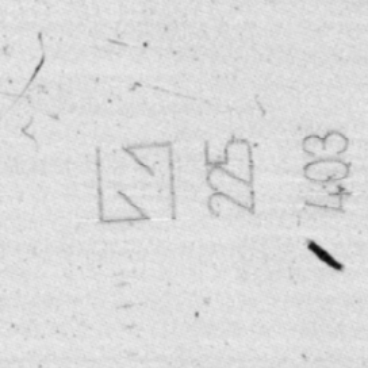 225
403